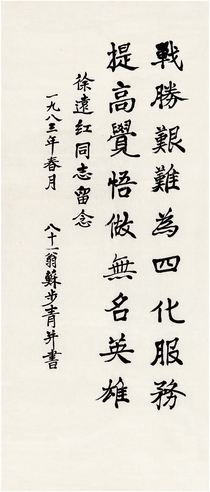 戰勝艱難為四化服務
提高覺悟做無名英雄
徐遠红同志留念
一九八三年春月
八十一翁蘇步青并書